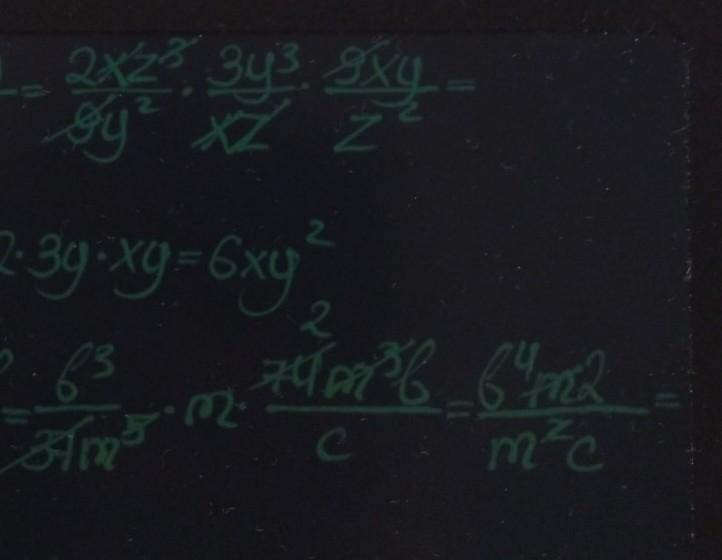 = 2xz³/9y² · 3y³/xz · 9xy/z² =
2·3y·xy=6xy²
= b³/37m⁵ · m · 74m³b/c 2 = b⁴m2/m²c =